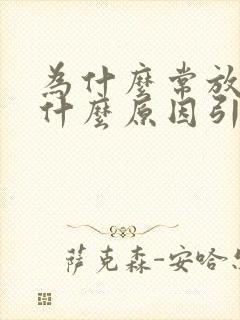 為什麼常放
什麼原因引
萨克森-安哈